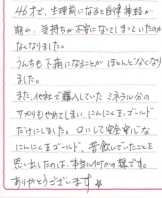 46才で、生理前になると自律神経が
崩れ、気持ちが不安になってしまっていたのが
なくなりました。
うんちも下痢になることがほとんどなくなり
ました。
また、他社で購入していたミネラル分の
サプリもやめてしまい、にんにく玉ゴールド
だけにしました。口コミで完全安心な
にんにく玉ゴールド、昔飲んでいたことを
思い出したのは、本当に何かの縁です。
ありがとうございます